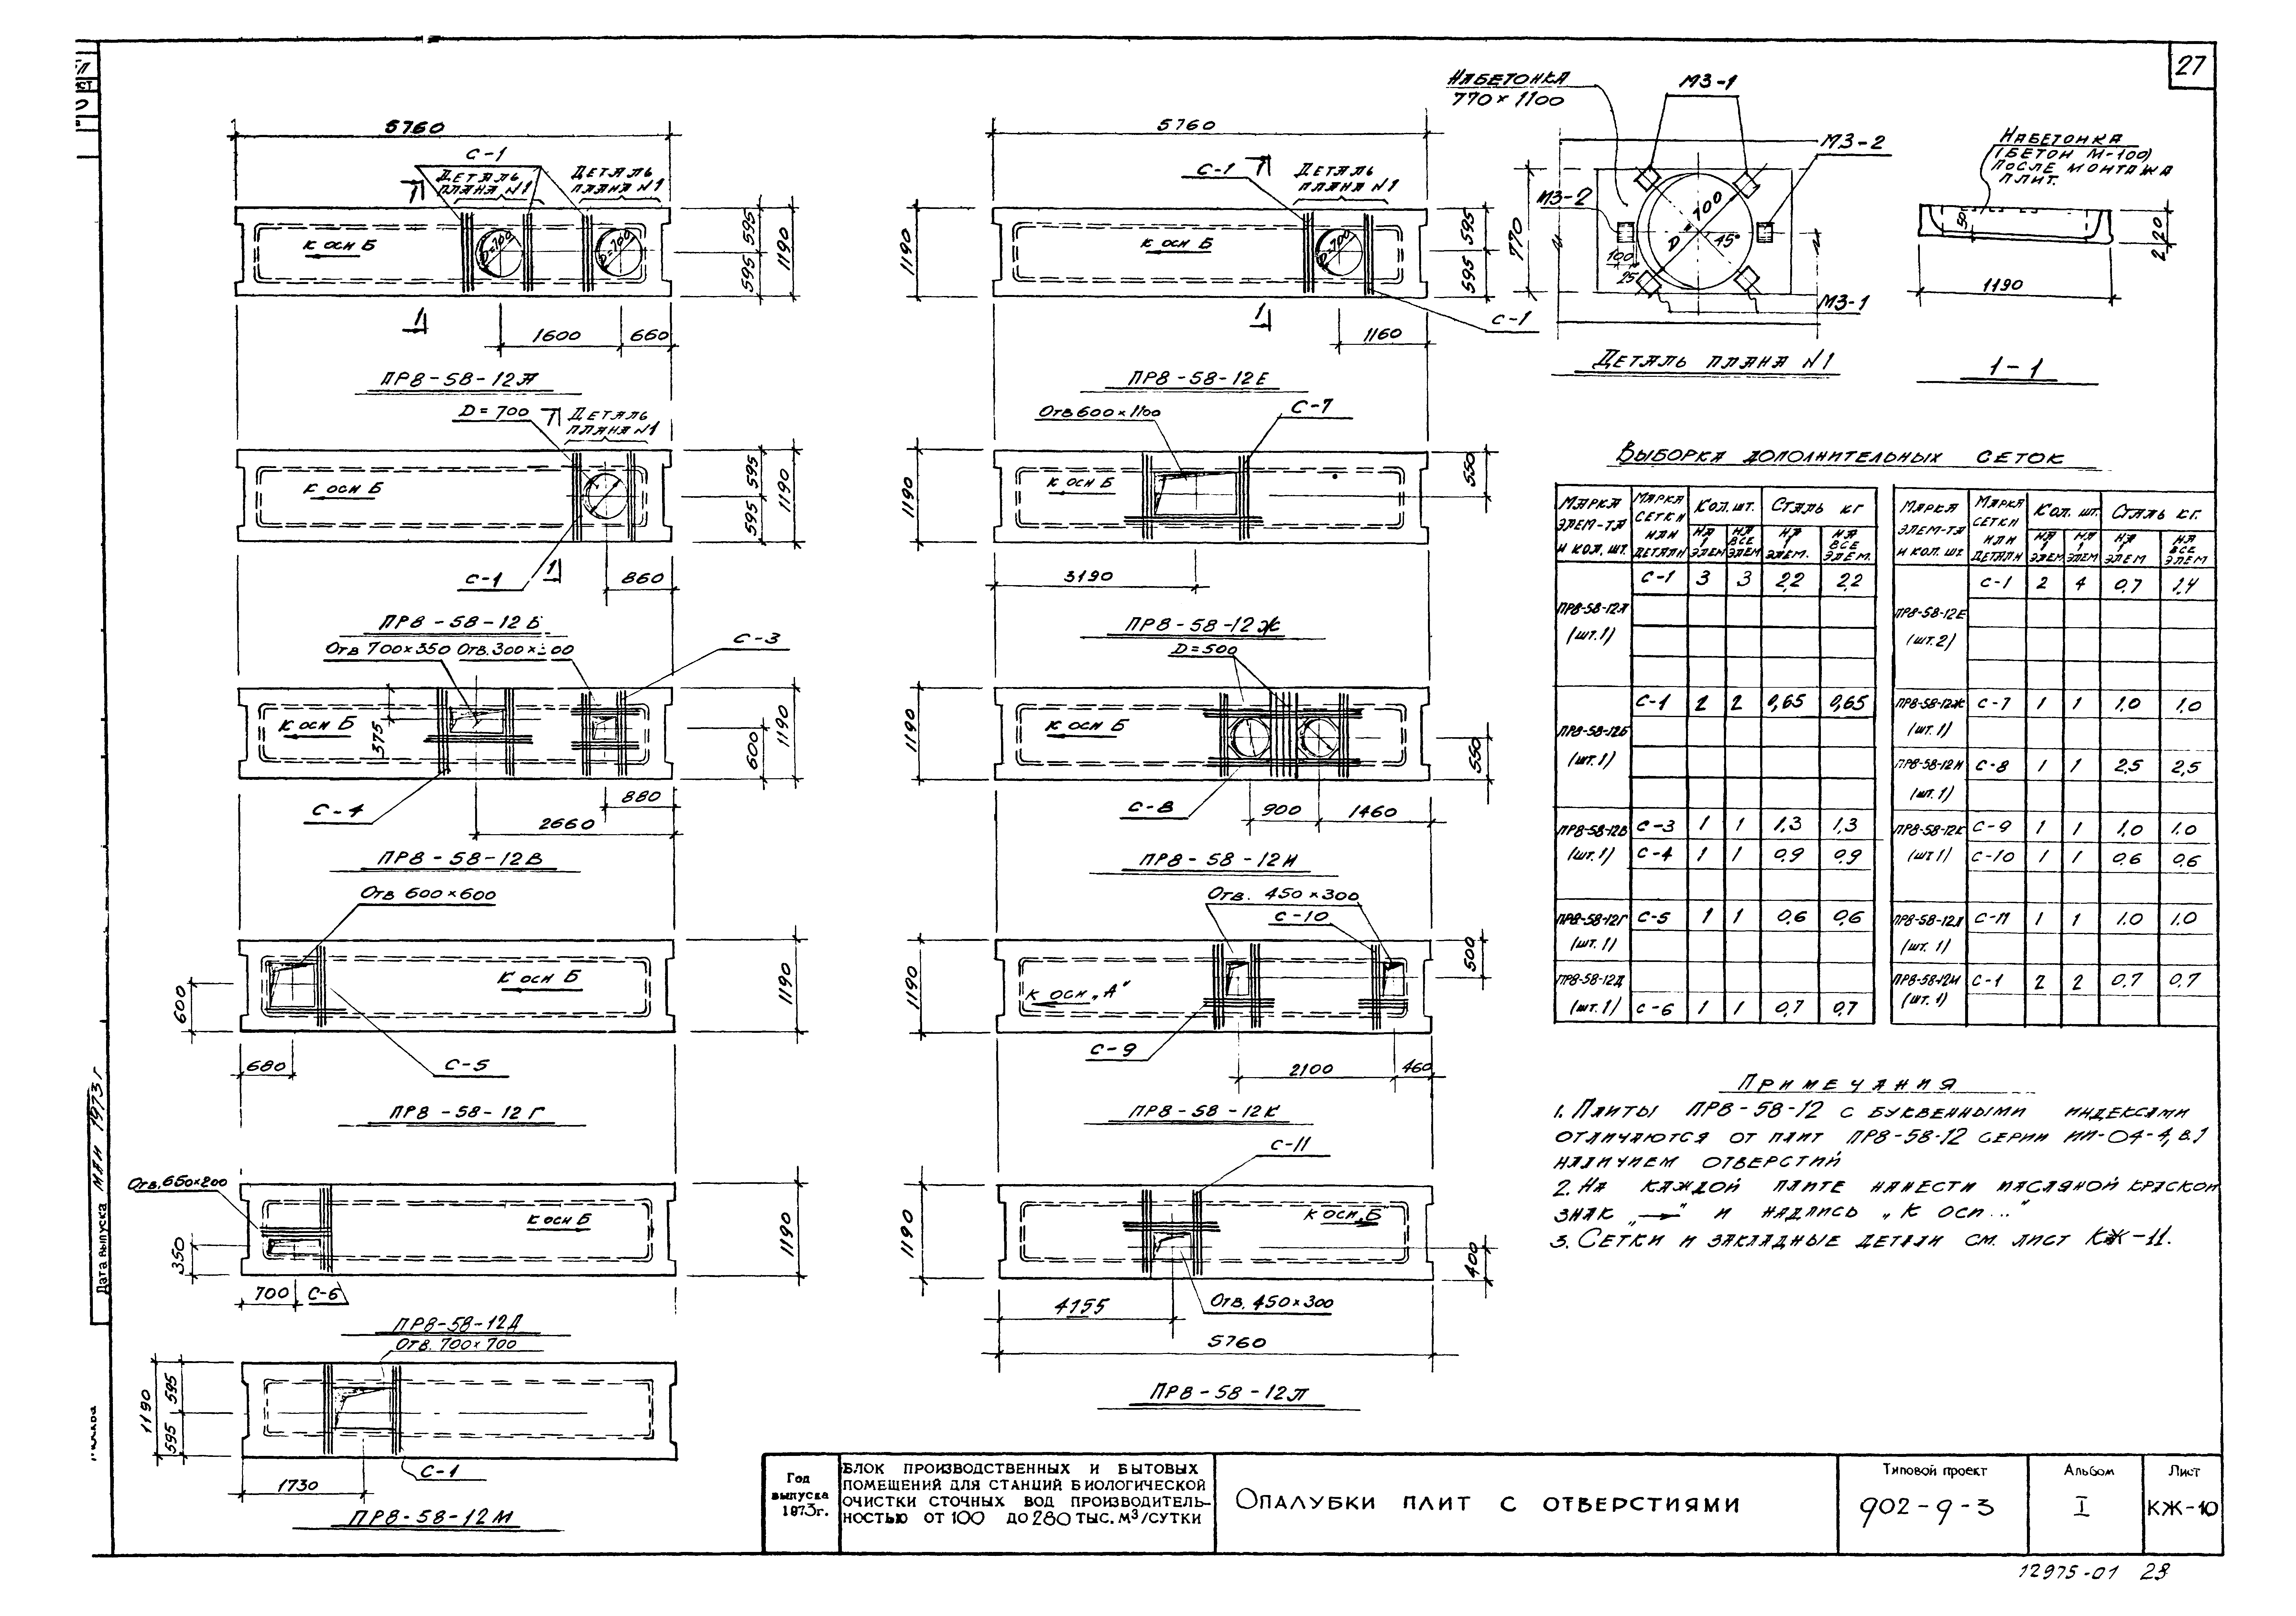 27
5760
С-1
ДЕТАЛЬ ПЛАНА №1
ДЕТАЛЬ ПЛАНА №1
К ОСИ Б
D=700
D=700
595
595
1190
1
1600
660
ПР8-58-12А
D=700
ДЕТАЛЬ ПЛАНА №1
К ОСИ Б
595
595
1190
С-1
1
860
ПР8-58-12Б
ОТВ 700×350
ОТВ. 300×
С-3
К ОСИ Б
375
1190
600
С-4
880
2660
ПР8-58-12В
ОТВ 600×600
К ОСИ Б
1190
600
680
С-5
ПР8-58-12Г
ОТВ. 650×200
К ОСИ Б
1190
350
700
С-6
ПР8-58-12Д
ОТВ. 700×700
1190
595
595
1730
С-1
ПР8-58-12М
5760
С-1
ДЕТАЛЬ ПЛАНА №1
К ОСИ Б
D=700
1190
595
595
С-1
1
1160
ПР8-58-12Е
ОТВ 600×1100
С-7
К ОСИ Б
1190
550
3190
ПР8-58-12Ж
D=500
К ОСИ Б
1190
550
С-8
900
1460
ПР8-58-12И
ОТВ. 450×300
С-10
К ОСИ „А"
1190
500
С-9
2100
460
ПР8-58-12К
С-11
К ОСИ „Б"
1190
400
4155
ОТВ. 450×300
5760
ПР8-58-12Л
НАБЕТОНКА
770×1100
МЗ-1
МЗ-2
МЗ-2
D=700
45°
770
100
25
МЗ-1
ДЕТАЛЬ ПЛАНА №1
НАБЕТОНКА
(БЕТОН М-100)
ПОСЛЕ МОНТАЖА
ПЛИТ.
50
220
1190
1-1
ВЫБОРКА ДОПОЛНИТЕЛЬНЫХ СЕТОК
МАРКА ЭЛЕМ-ТА И КОЛ. ШТ. МАРКА СЕТКИ ИЛИ ДЕТАЛИ КОЛ. ШТ. СТАЛЬ КГ
НА 1 ЭЛЕМ НА ВСЕ ЭЛЕМ НА 1 ЭЛЕМ. НА ВСЕ ЭЛЕМ.
ПР8-58-12А (ШТ.1) С-1 3 3 2,2 2,2
ПР8-58-12Б (ШТ.1) С-1 2 2 0,65 0,65
ПР8-58-12В (ШТ.1) С-3 1 1 1,3 1,3
С-4 1 1 0,9 0,9
ПР8-58-12Г (ШТ.1) С-5 1 1 0,6 0,6
ПР8-58-12Д (ШТ.1) С-6 1 1 0,7 0,7
МАРКА ЭЛЕМ-ТА И КОЛ. ШТ МАРКА СЕТКИ ИЛИ ДЕТАЛИ КОЛ. ШТ. СТАЛЬ КГ.
НА 1 ЭЛЕМ НА 1 ЭЛЕМ НА 1 ЭЛЕМ НА ВСЕ ЭЛЕМ
ПР8-58-12Е (ШТ.2) С-1 2 4 0,7 1,4
ПР8-58-12Ж (ШТ.1) С-7 1 1 1,0 1,0
ПР8-58-12И (ШТ.1) С-8 1 1 2,5 2,5
ПР8-58-12К (ШТ 1) С-9 1 1 1,0 1.0
С-10 1 1 0,6 0,6
ПР8-58-12Л (ШТ.1) С-11 1 1 1.0 1.0
ПР8-58-12М (ШТ.1) С-1 2 2 0.7 0.7
ПРИМЕЧАНИЯ
1. ПЛИТЫ ПР8-58-12 С БУКВЕННЫМИ ИНДЕКСАМИ
ОТЛИЧАЮТСЯ ОТ ПЛИТ ПР8-58-12 СЕРИИ ИИ-04-4, В.1
НАЛИЧИЕМ ОТВЕРСТИЙ
2. НА КАЖДОЙ ПЛИТЕ НАНЕСТИ МАСЛЯНОЙ КРАСКОЙ
ЗНАК „→" И НАДПИСЬ „К ОСИ..."
3. СЕТКИ И ЗАКЛАДНЫЕ ДЕТАЛИ СМ. ЛИСТ КЖ-11.
Дата выпуска МАЙ 1973 г
МОСКВА
Год выпуска 1973г.
БЛОК ПРОИЗВОДСТВЕННЫХ И БЫТОВЫХ
ПОМЕЩЕНИЙ ДЛЯ СТАНЦИЙ БИОЛОГИЧЕСКОЙ
ОЧИСТКИ СТОЧНЫХ ВОД ПРОИЗВОДИТЕЛЬ-
НОСТЬЮ ОТ 100 ДО 280 ТЫС. М³/СУТКИ
ОПАЛУБКИ ПЛИТ С ОТВЕРСТИЯМИ
Типовой проект
902-9-3
Альбом
I
Лист
КЖ-10
12975-01 28